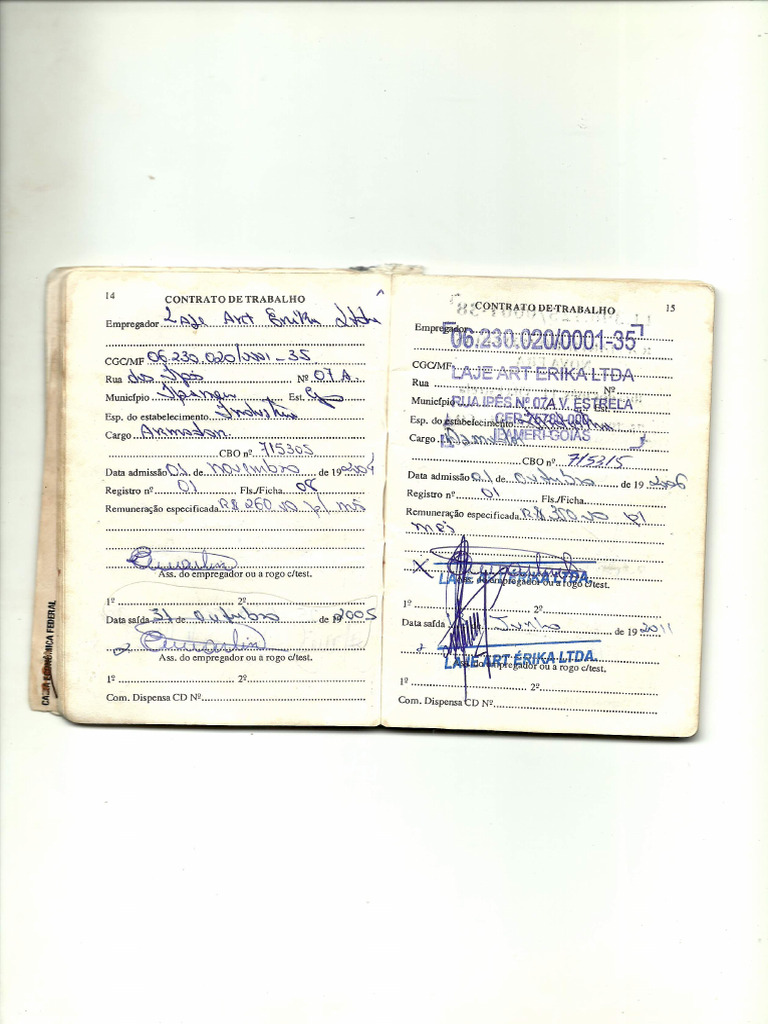 14
CONTRATO DE TRABALHO
Empregador Laje Art Erika Ltda
CGC/MF 06.230.020/0001-35
Rua dos Ipês Nº 07 A.
Município Ipameri Est. Go
Esp. do estabelecimento Indústria
Cargo Armador
CBO nº 715305
Data admissão 01 de novembro de 19 2004
Registro nº 01 Fls./Ficha 08
Remuneração especificada R$ 260,00 p/ mês
Ass. do empregador ou a rogo c/test.
1º 2º
Data saída 31 de outubro de 19 2005
Ass. do empregador ou a rogo c/test.
1º 2º
Com. Dispensa CD Nº
CAIXA ECONÔMICA FEDERAL
15
CONTRATO DE TRABALHO
Empregador
06.230.020/0001-35
CGC/MF
LAJE ART ERIKA LTDA
Rua Nº
Município RUA IPÊS Nº 07A V. ESTRELA
Esp. do estabelecimento
CEP 75780-000
Cargo
IPAMERI-GOIÁS
CBO nº 715315
Data admissão 01 de de 19 2006
Registro nº 01 Fls./Ficha
Remuneração especificada R$ 350,00 p/
mês
LAJE ART ÉRIKA LTDA.
Ass. do empregador ou a rogo c/test.
1º 2º
Data saída de Junho de 19 2011
LAJE ART ÉRIKA LTDA.
Ass. do empregador ou a rogo c/test.
1º 2º
Com. Dispensa CD Nº